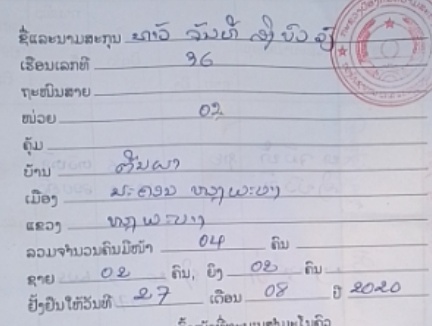 ຊື່ແລະນາມສະກຸນ ທາວ ຈັນທີ
ເຮືອນເລກທີ 36
ຖະໜົນສາຍ
ໜ່ວຍ 02
ຄຸ້ມ
ບ້ານ ຕີນຜາ
ເມືອງ ນະຄອນ ຫຼວງພະບາງ
ແຂວງ ຫຼວງພະບາງ
ລວມຈຳນວນຄົນມີໜ້າ 04 ຄົນ
ຊາຍ 02 ຄົນ, ຍິງ 02 ຄົນ
ຢັ້ງຢືນໃຫ້ວັນທີ 27 ເດືອນ 08 ປີ 2020